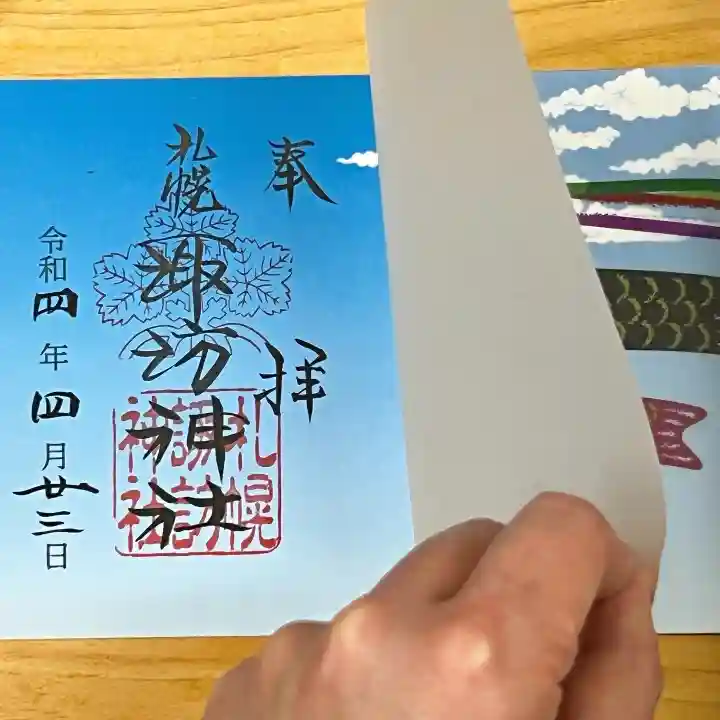 奉拝
札幌
諏訪神社
札幌
諏訪
神社
令和四年四月廿三日